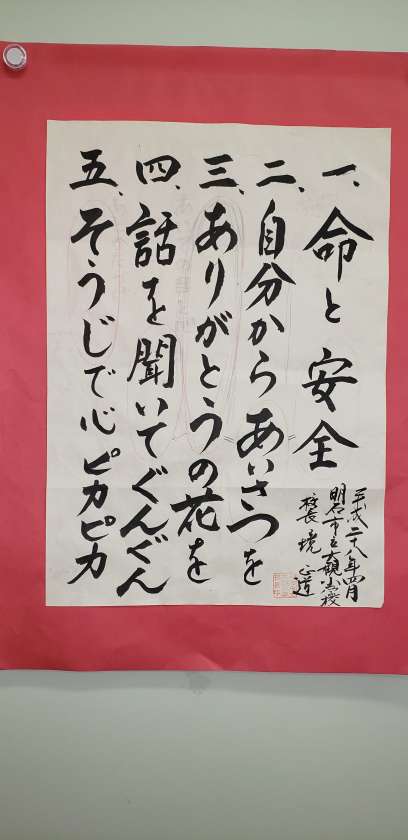 一、命と安全
二、自分からあいさつを
三、ありがとうの花を
四、話を聞いてぐんぐん
五、そうじで心ピカピカ
平成二十八年四月
明石市立大観小学校
校長 境 正道